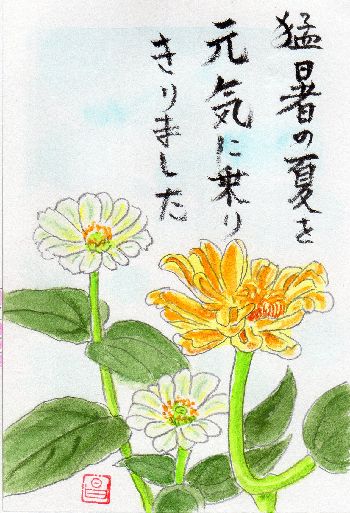 猛暑の夏を
元気に乗り
きりました